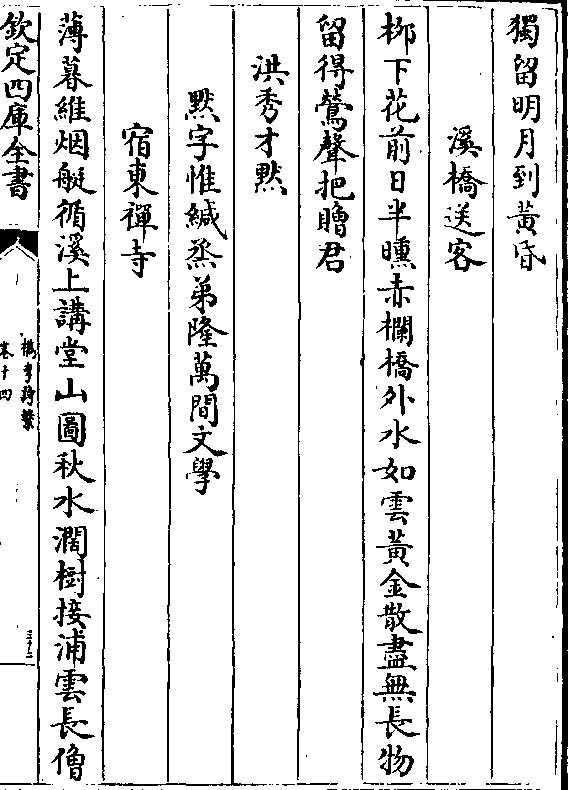 獨留明月到黃昏
溪橋送客
柳下花前日半曛赤欄橋外水如雲黃金散盡無長物
留得鶯聲把贈君
洪秀才黙
黙字惟緘烝弟隆萬間文學
宿東禪寺
薄暮維烟艇循溪上講堂山圖秋水濶樹接浦雲長僧
欽定四庫全書
檇李詩繫
卷十四
三十二